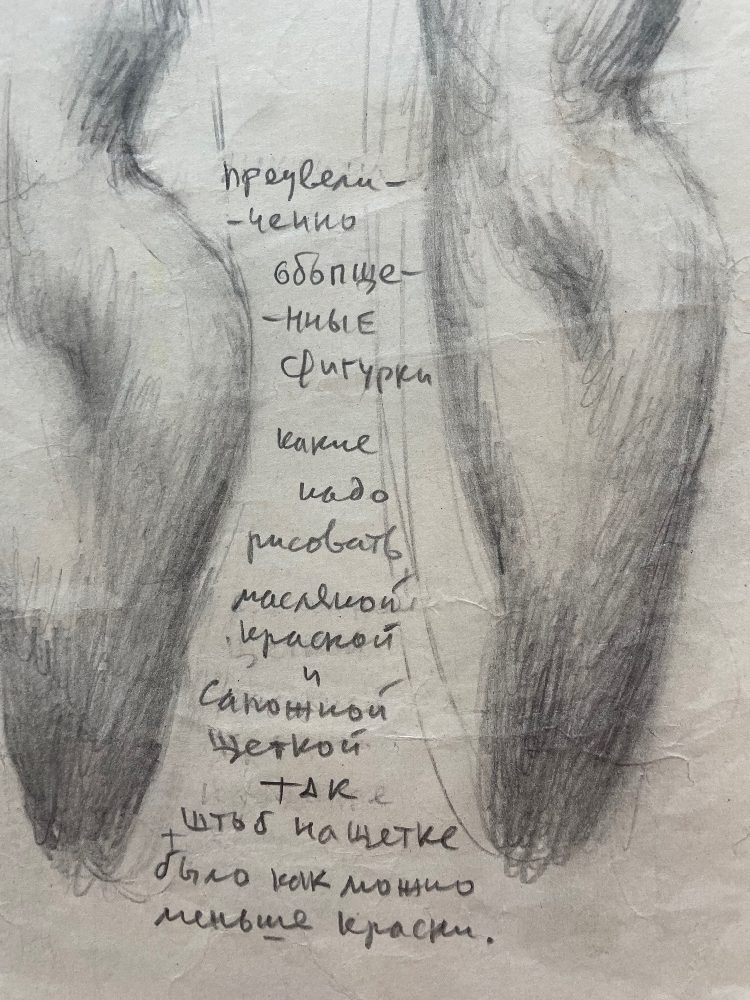 преувели-
-ченно
обобще-
-нные
фигурки
какие
надо
рисовать
масляной
краской
и
сапожной
щеткой
так
штоб на щетке
было как можно
меньше краски.